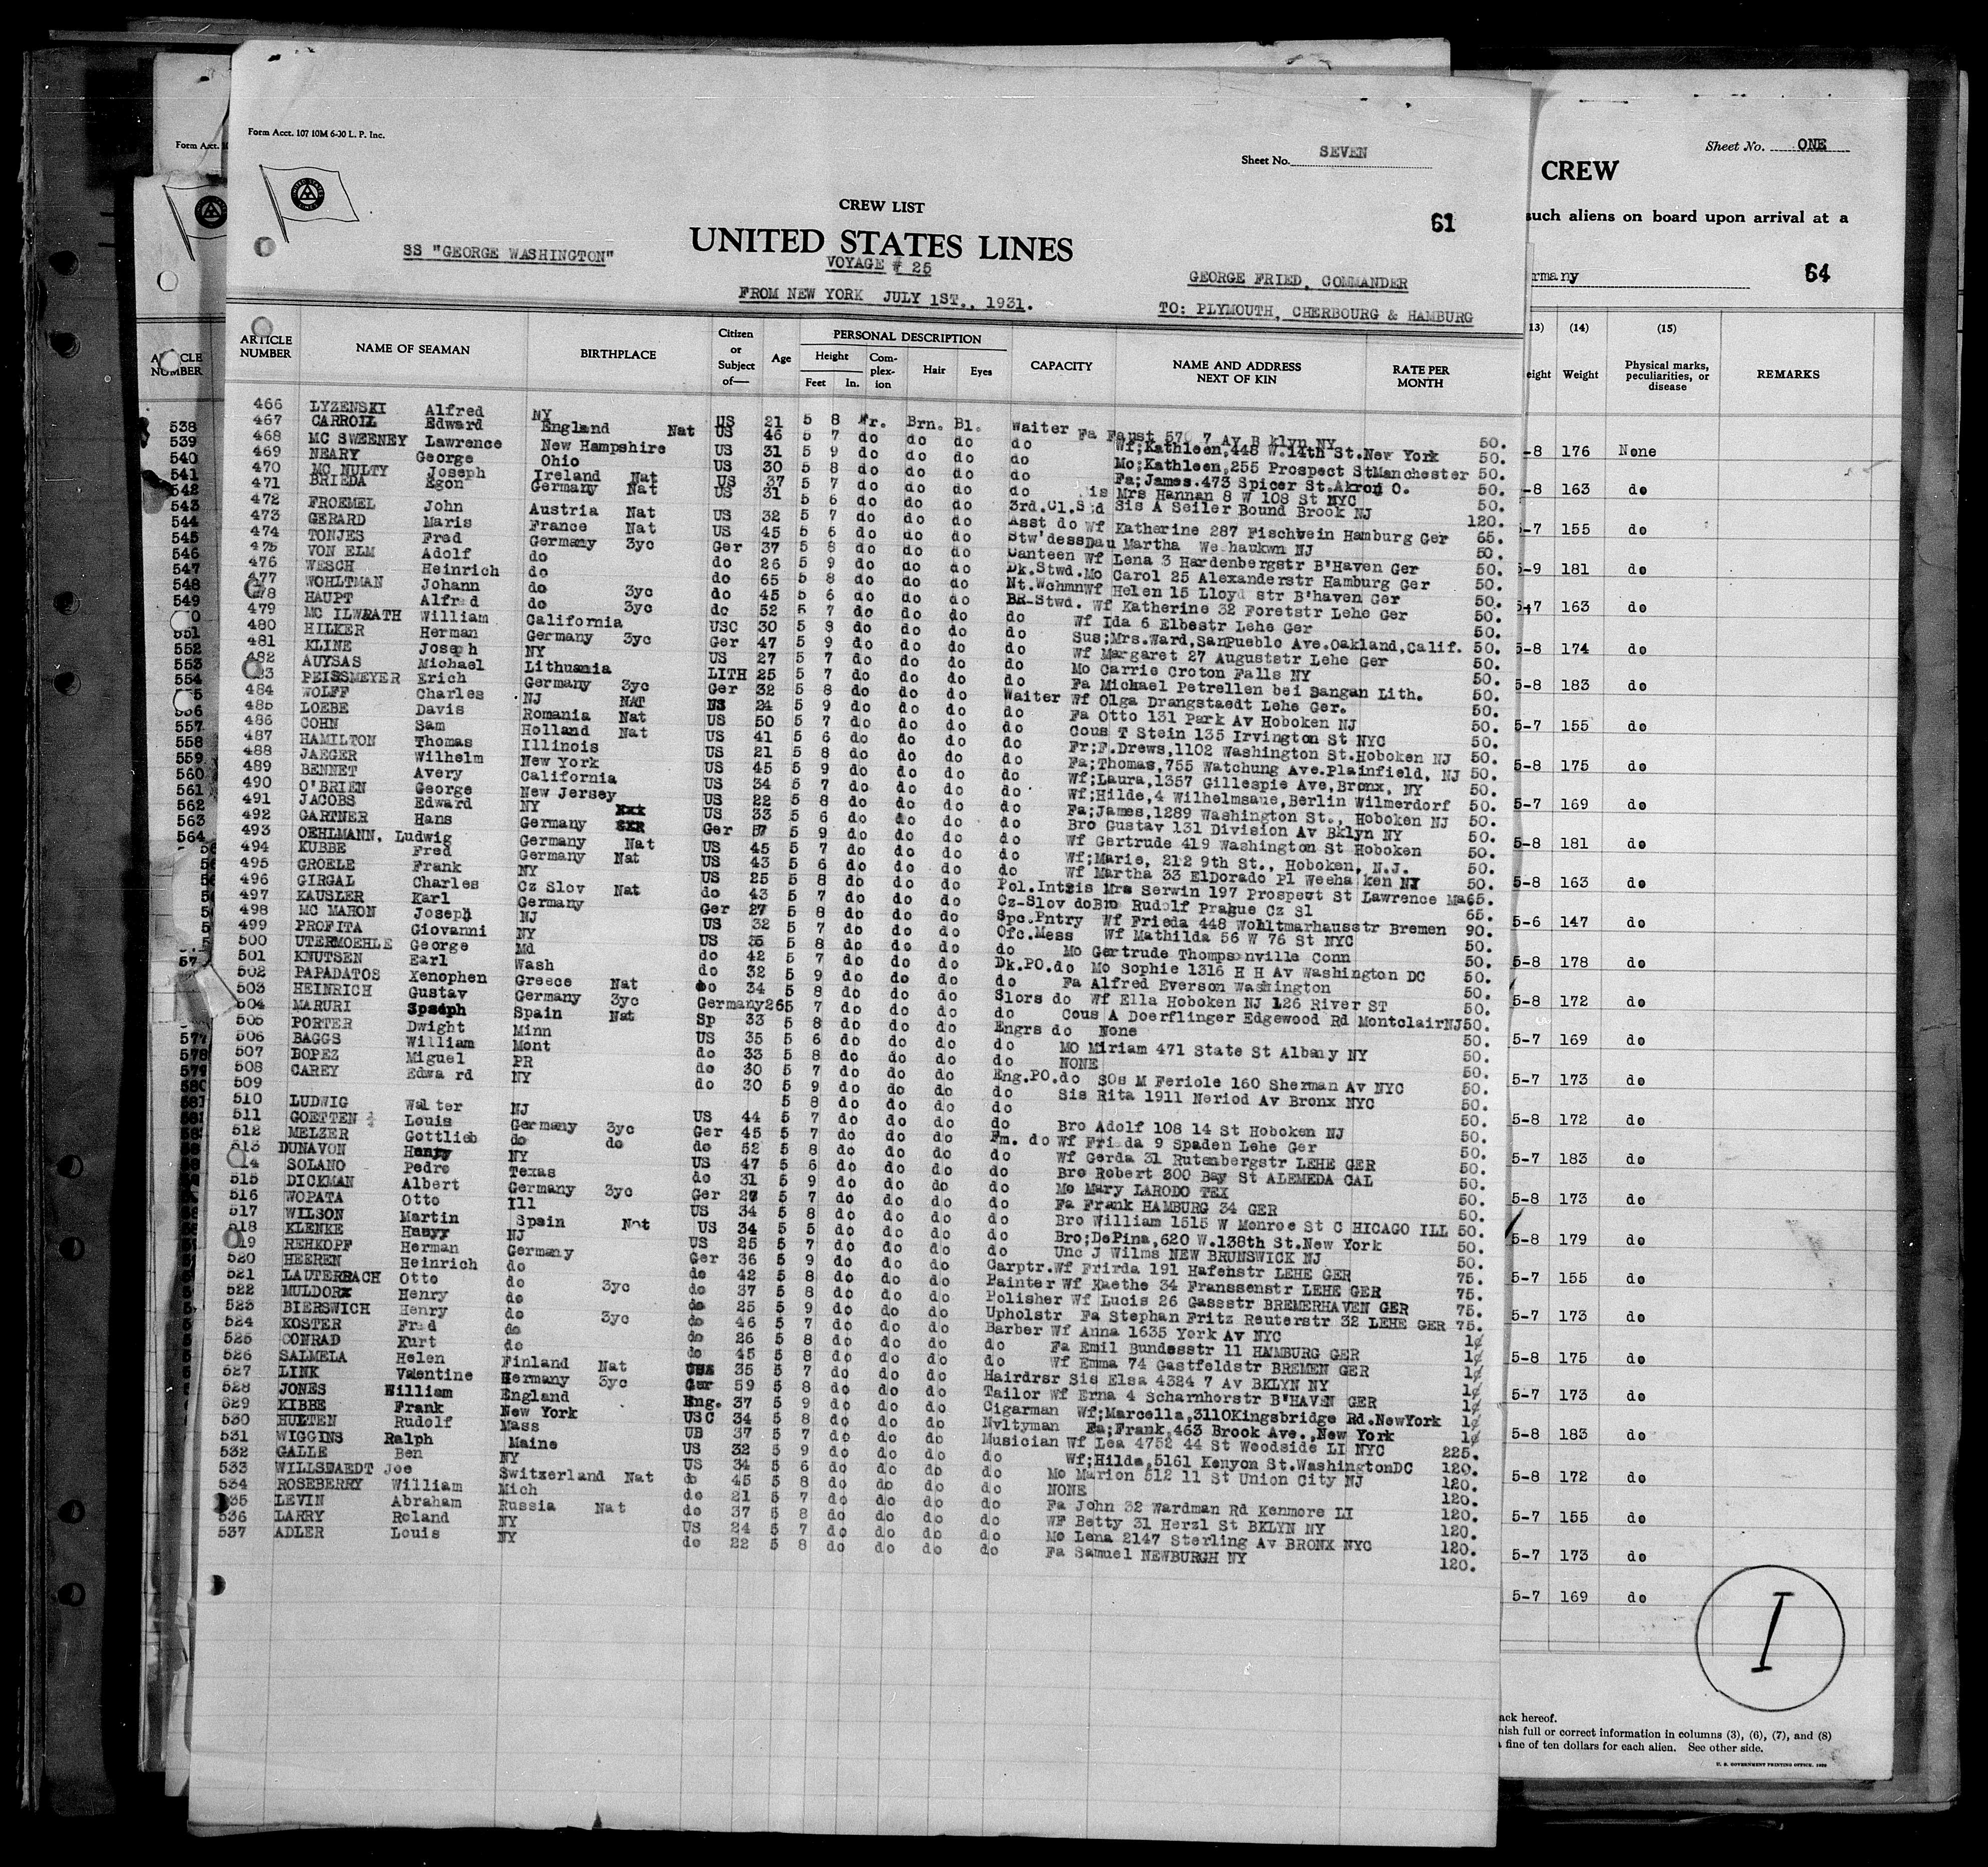 Form Acct. 107 10M 6-30 L. P. Inc.
Sheet No. SEVEN
CREW LIST
61
UNITED STATES LINES
SS "GEORGE WASHINGTON"
VOYAGE # 25
GEORGE FRIED, COMMANDER
FROM NEW YORK JULY 1ST., 1931.
TO: PLYMOUTH, CHERBOURG & HAMBURG
ARTICLE NUMBER
NAME OF SEAMAN
BIRTHPLACE
Citizen or Subject of—
Age
PERSONAL DESCRIPTION
Height
Feet In.
Complexion
Hair
Eyes
CAPACITY
NAME AND ADDRESS NEXT OF KIN
RATE PER MONTH
466 LYZENSKI Alfred NY US 21 5 8 Brn. Bl. Waiter 50.
467 CARROLL Edward England Nat US 46 5 7 do do do do Wf;Kathleen,448 W.14th St.New York 50.
468 MC SWEENEY Lawrence New Hampshire US 31 5 9 do do do do Mo;Kathleen,255 Prospect StManchester 50.
469 NEARY George Ohio US 30 5 8 do do do do Fa;James.473 Spicer St.Akron O. 50.
470 MC NULTY Joseph Ireland Nat US 37 5 7 do do do do is Mrs Hannan 8 W 108 St NYC 50.
471 BRIEDA Egon Germany Nat US 31 5 6 do do do 3rd.Cl.Std Sis A Seiler Bound Brook NJ 120.
472 FROEMEL John Austria Nat US 32 5 7 do do do Asst do Wf Katherine 287 Fischtwein Hamburg Ger 65.
473 GERARD Maris France Nat US 45 5 6 do do do Stw'dess Dau Martha We haukwn NJ 50.
474 TONJES Fred Germany 3yc Ger 37 5 8 do do do Canteen Wf Lena 3 Hardenbergstr B'Haven Ger 50.
475 VON ELM Adolf do do 26 5 9 do do do Dk.Stwd.Mo Carol 25 Alexanderstr Hamburg Ger 50.
476 WESCH Heinrich do do 65 5 8 do do do Nt.WchmnWf Helen 15 Lloyd str B'haven Ger 50.
477 WOHLTMAN Johann do 3yc do 45 5 6 do do do BR-Stwd. Wf Katherine 32 Foretstr Lehe Ger 50.
478 HAUPT Alfred do 3yc do 52 5 7 do do do do Wf Ida 6 Elbestr Lehe Ger 50.
479 MC ILWRATH William California USC 30 5 8 do do do do Sus;Mrs.Ward,SanPueblo Ave.Oakland,Calif. 50.
480 HILKER Herman Germany 3yc Ger 47 5 9 do do do do Wf Margaret 27 Auguststr Lehe Ger 50.
481 KLINE Joseph NY US 27 5 7 do do do do Mo Carrie Croton Falls NY 50.
482 AUYSAS Michael Lithuania LITH 25 5 7 do do do do Fa Michael Petrellen bei Sangan Lith. 50.
483 PEISSMEYER Erich Germany 3yc Ger 32 5 8 do do do Waiter Wf Olga Drangstaedt Lehe Ger. 50.
484 WOLFF Charles NJ NAT 24 5 9 do do do do Fa Otto 131 Park Av Hoboken NJ 50.
485 LOEBE Davis Romania Nat US 50 5 7 do do do do Cous T Stein 135 Irvington St NYC 50.
486 COHN Sam Holland Nat US 41 5 6 do do do do Fr;F.Drews,1102 Washington St.Hoboken NJ 50.
487 HAMILTON Thomas Illinois US 21 5 8 do do do do Fa;Thomas,755 Watchung Ave.Plainfield, NJ 50.
488 JAEGER Wilhelm New York US 45 5 9 do do do do Wf;Laura,1357 Gillespie Ave,Bronx, NY 50.
489 BENNET Avery California US 34 5 7 do do do do Wf;Hilde,4 Wilhelmsaue,Berlin Wilmerdorf 50.
490 O'BRIEN George New Jersey US 22 5 8 do do do do Fa;James,1289 Washington St., Hoboken NJ 50.
491 JACOBS Edward NY US 33 5 6 do do do do Bro Gustav 131 Division Av Bklyn NY 50.
492 GARTNER Hans Germany Ger 37 5 9 do do do do Wf Gertrude 419 Washington St Hoboken 50.
493 OEHLMANN, Ludwig Germany Nat US 45 5 7 do do do do Wf;Marie, 212 9th St., Hoboken, N.J. 50.
494 KUBBE Fred Germany Nat US 43 5 6 do do do do Wf Martha 33 ElDorado Pl Weeha ken NJ 50.
495 GROELE Frank NY US 25 5 8 do do do Pol.Int Sis Mrs Serwin 197 Prospect St Lawrence Ma 65.
496 GIRGAL Charles Cz Slov Nat do 43 5 7 do do do Cz-Slov do Bro Rudolf Prague Cz Sl 65.
497 KAUSLER Karl Germany Ger 27 5 8 do do do Spc.Pntry Wf Frieda 448 Wohltmarhausstr Bremen 90.
498 MC MAHON Joseph NJ US 32 5 7 do do do Ofc.Mess Wf Mathilda 56 W 76 St NYC 50.
499 PROFITA Giovanni NY US 35 5 8 do do do do Mo Gertrude Thompsonville Conn 50.
500 UTERMOEHLE George Md do 42 5 7 do do do Dk.PO.do Mo Sophie 1316 H H Av Washington DC 50.
501 KNUTSEN Earl Wash do 32 5 9 do do do do Fa Alfred Everson Washington 50.
502 PAPADATOS Xenophen Greece Nat do 34 5 8 do do do Slors do Wf Ella Hoboken NJ 126 River ST 50.
503 HEINRICH Gustav Germany 3yc Germany 26 5 7 do do do do Cous A Doerflinger Edgewood Rd MontclairNJ 50.
504 MARURI Joseph Spain Nat Sp 33 5 8 do do do Engrs do None 50.
505 PORTER Dwight Minn US 35 5 6 do do do do MO Miriam 471 State St Albany NY 50.
506 BAGGS William Mont do 33 5 8 do do do do NONE 50.
507 BOPEZ Miguel PR do 30 5 7 do do do Eng.PO.do SOs M Feriole 160 Sherman Av NYC 50.
508 CAREY Edwa rd NY do 30 5 9 do do do do Sis Rita 1911 Neriod Av Bronx NYC 50.
509 5 8 do do do do 50.
510 LUDWIG Walter NJ US 44 5 7 do do do do Bro Adolf 108 14 St Hoboken NJ 50.
511 GOETTEN Louis Germany 3yc Ger 45 5 7 do do do Fm. do Wf Frieda 9 Spaden Lehe Ger 50.
512 MELZER Gottlieb do do do 52 5 8 do do do do Wf Gerda 31 Rutenbergstr LEHE GER 50.
513 DUNAVON Henry NY US 47 5 6 do do do do Bro Robert 300 Bay St ALEMEDA CAL 50.
514 SOLANO Pedro Texas do 31 5 9 do do do do Mo Mary LARODO TEX 50.
515 DICKMAN Albert Germany 3yc Ger 27 5 7 do do do do Fa Frank HAMBURG 34 GER 50.
516 WOPATA Otto Ill US 34 5 8 do do do do Bro William 1515 W Monroe St C HICAGO ILL 50.
517 WILSON Martin Spain Nat US 34 5 5 do do do do Bro;DePina,620 W.138th St.New York 50.
518 KLENKE Harry NJ US 25 5 7 do do do do Unc J Wilms NEW BRUNSWICK NJ 50.
519 REHKOPF Herman Germany Ger 36 5 9 do do do Carptr.Wf Frirda 191 Hafenstr LEHE GER 75.
520 HEEREN Heinrich do do 42 5 8 do do do Painter Wf Kaethe 34 Franssenstr LEHE GER 75.
521 LAUTERBACH Otto do 3yc do 37 5 8 do do do Polisher Wf Lucis 26 Gassstr BREMERHAVEN GER 75.
522 MULDOR Henry do do 25 5 9 do do do Upholstr Fa Stephan Fritz Reuterstr 32 LEHE GER 75.
523 BIERSWICH Henry do 3yc do 46 5 7 do do do Barber Wf Anna 1635 York Av NYC 1¢
524 KOSTER Fred do do 26 5 8 do do do do Fa Emil Bundesstr 11 HAMBURG GER 1¢
525 CONRAD Kurt do do 45 5 8 do do do do Wf Emma 74 Gastfeldstr BREMEN GER 1¢
526 SALMELA Helen Finland Nat 35 5 7 do do do Hairdrsr Sis Elsa 4324 7 Av BKLYN NY 1¢
527 LINK Valentine Germany 3yc Ger 59 5 8 do do do Tailor Wf Erna 4 Scharnhorstr B'HAVEN GER 1¢
528 JONES William England Eng. 37 5 9 do do do Cigarman Wf;Marcella,3110Kingsbridge Rd.NewYork 1¢
529 KIBBE Frank New York USC 34 5 8 do do do Nvltyman Fa;Frank,463 Brook Ave.,New York 1¢
530 HULTEN Rudolf Mass US 37 5 7 do do do Musician Wf Lea 4752 44 St Woodside LI NYC 225.
531 WIGGINS Ralph Maine US 32 5 9 do do do do Wf;Hilda,5161 Kenyon St.WashingtonDC 120.
532 GALLE Ben NY US 34 5 6 do do do do Mo Marion 512 11 St Union City NJ 120.
533 WILLSHAEDT Joe Switxerland Nat do 45 5 8 do do do do NONE 120.
534 ROSEBERRY William Mich do 21 5 7 do do do do Fa John 32 Wardman Rd Kenmore LI 120.
535 LEVIN Abraham Russia Nat do 37 5 8 do do do do WF Betty 31 Herzl St BKLYN NY 120.
536 LARRY Roland NY US 24 5 7 do do do do Mo Lena 2147 Sterling Av BRONX NYC 120.
537 ADLER Louis NY do 22 5 8 do do do do Fa Samuel NEWBURGH NY 120.
Form Acct.
NUMBER
538
539
540
541
542
543
544
545
546
547
548
549
551
552
553
554
557
558
559
560
561
562
563
564
577
578
579
580
Sheet No. ONE
CREW
such aliens on board upon arrival at a
rmany
64
13) (14) (15)
eight Weight Physical marks, peculiarities, or disease REMARKS
-8 176 None
-8 163 do
-7 155 do
5-9 181 do
5-7 163 do
5-8 174 do
5-8 183 do
5-7 155 do
5-8 175 do
5-7 169 do
5-8 181 do
5-8 163 do
5-6 147 do
5-8 178 do
5-8 172 do
5-7 169 do
5-7 173 do
5-8 172 do
5-7 183 do
5-8 173 do
5-8 179 do
5-7 155 do
5-7 173 do
5-8 175 do
5-7 173 do
5-8 183 do
5-8 172 do
5-7 155 do
5-7 173 do
5-7 169 do
I
ack hereof.
nish full or correct information in columns (3), (6), (7), and (8)
a fine of ten dollars for each alien. See other side.
U. S. GOVERNMENT PRINTING OFFICE.